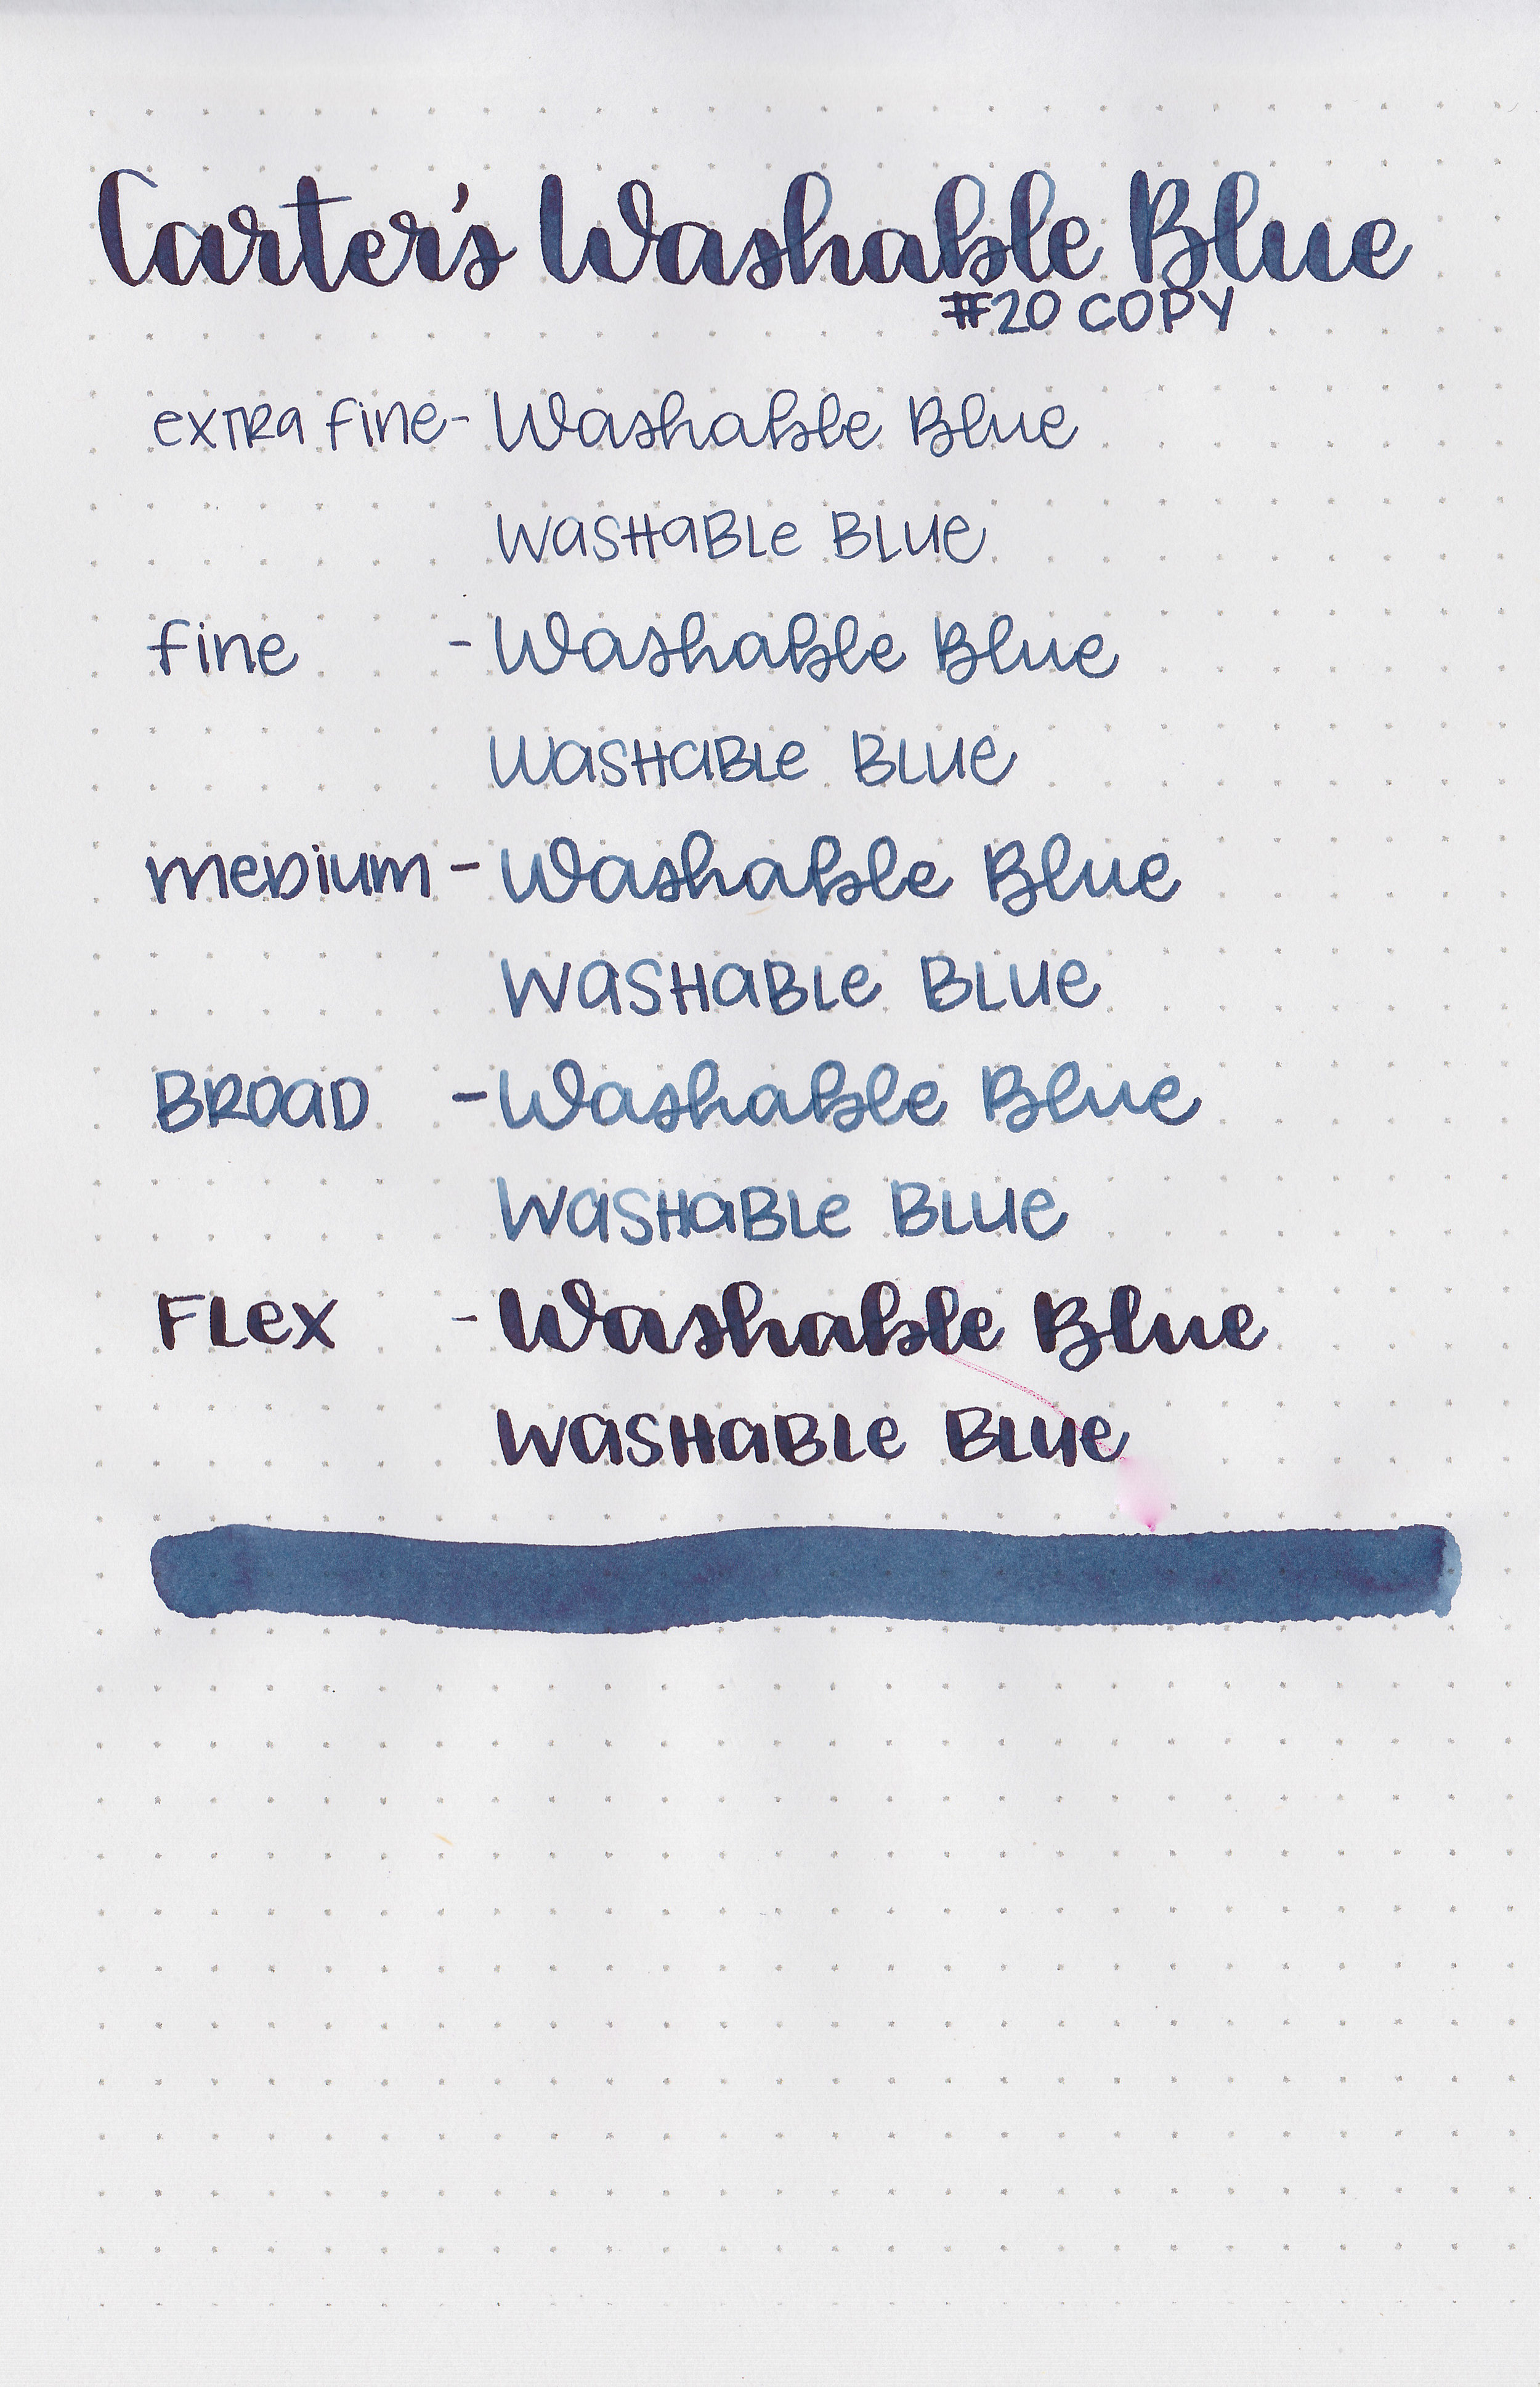 Carter's Washable Blue
#20 COPY
extra fine - Washable Blue
WASHABLE BLUE
fine - Washable Blue
WASHABLE BLUE
medium - Washable Blue
WASHABLE BLUE
BROAD - Washable Blue
WASHABLE BLUE
FLEX - Washable Blue
WASHABLE BLUE